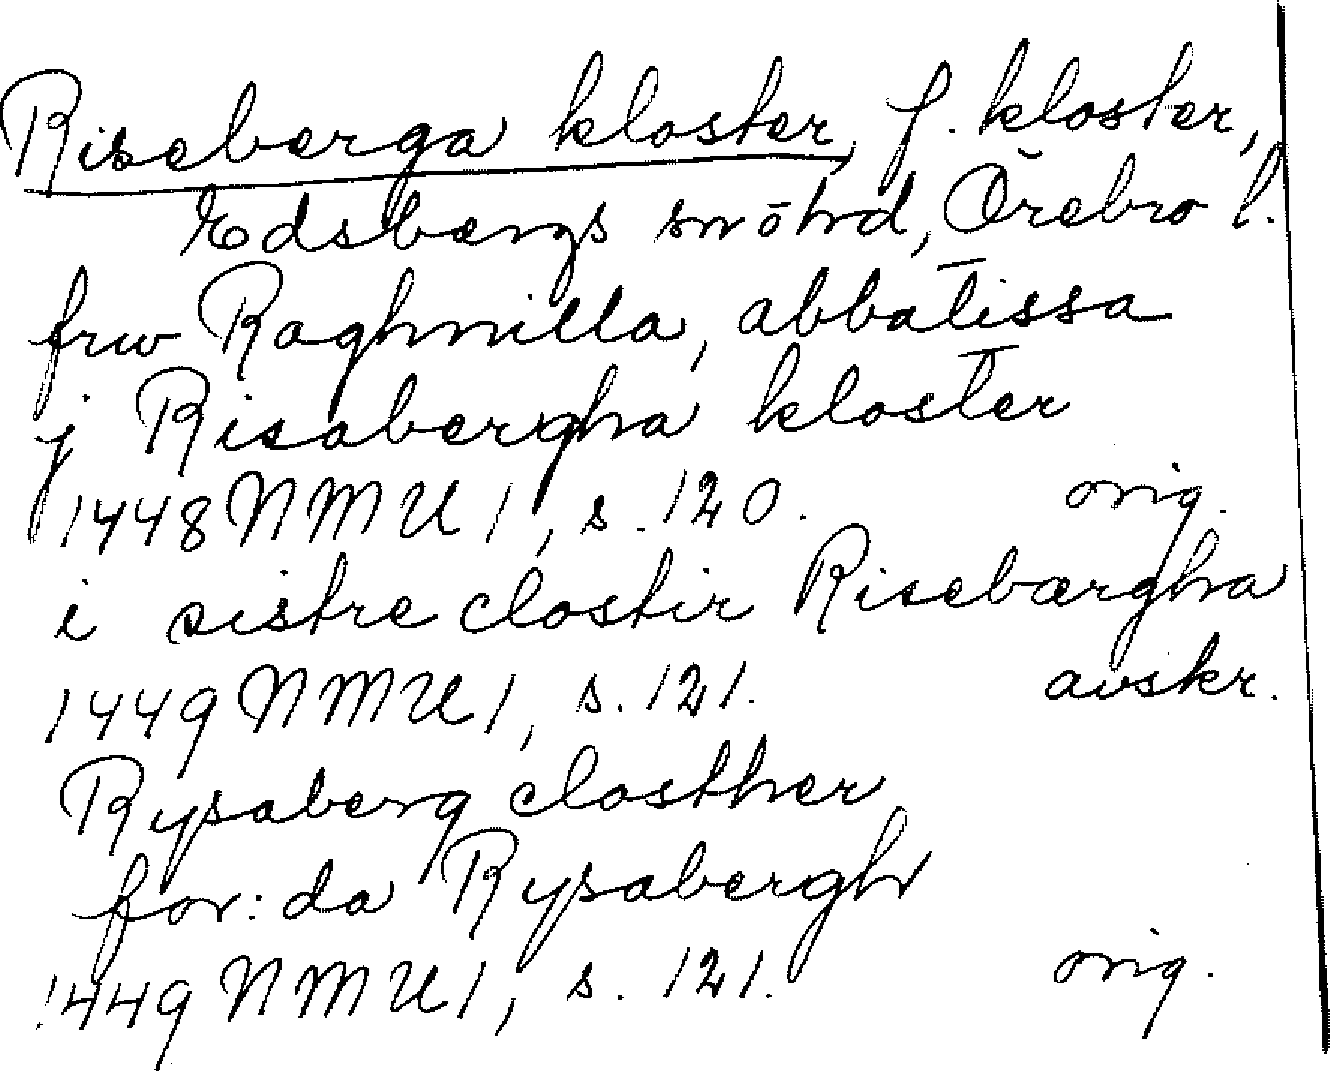 Riseberga kloster, f. kloster,
Edsbergs snōhd, Örebro l.
frw Raghnilla, abbatissa
j Risabergha kloster
1448 NMU 1, s. 120. orig.
i sistre clostir Risebærgha
1449 NMU 1, s. 121. avskr.
Rysaberg closther
for: da Rysabergh
1449 NMU 1, s. 121. orig.